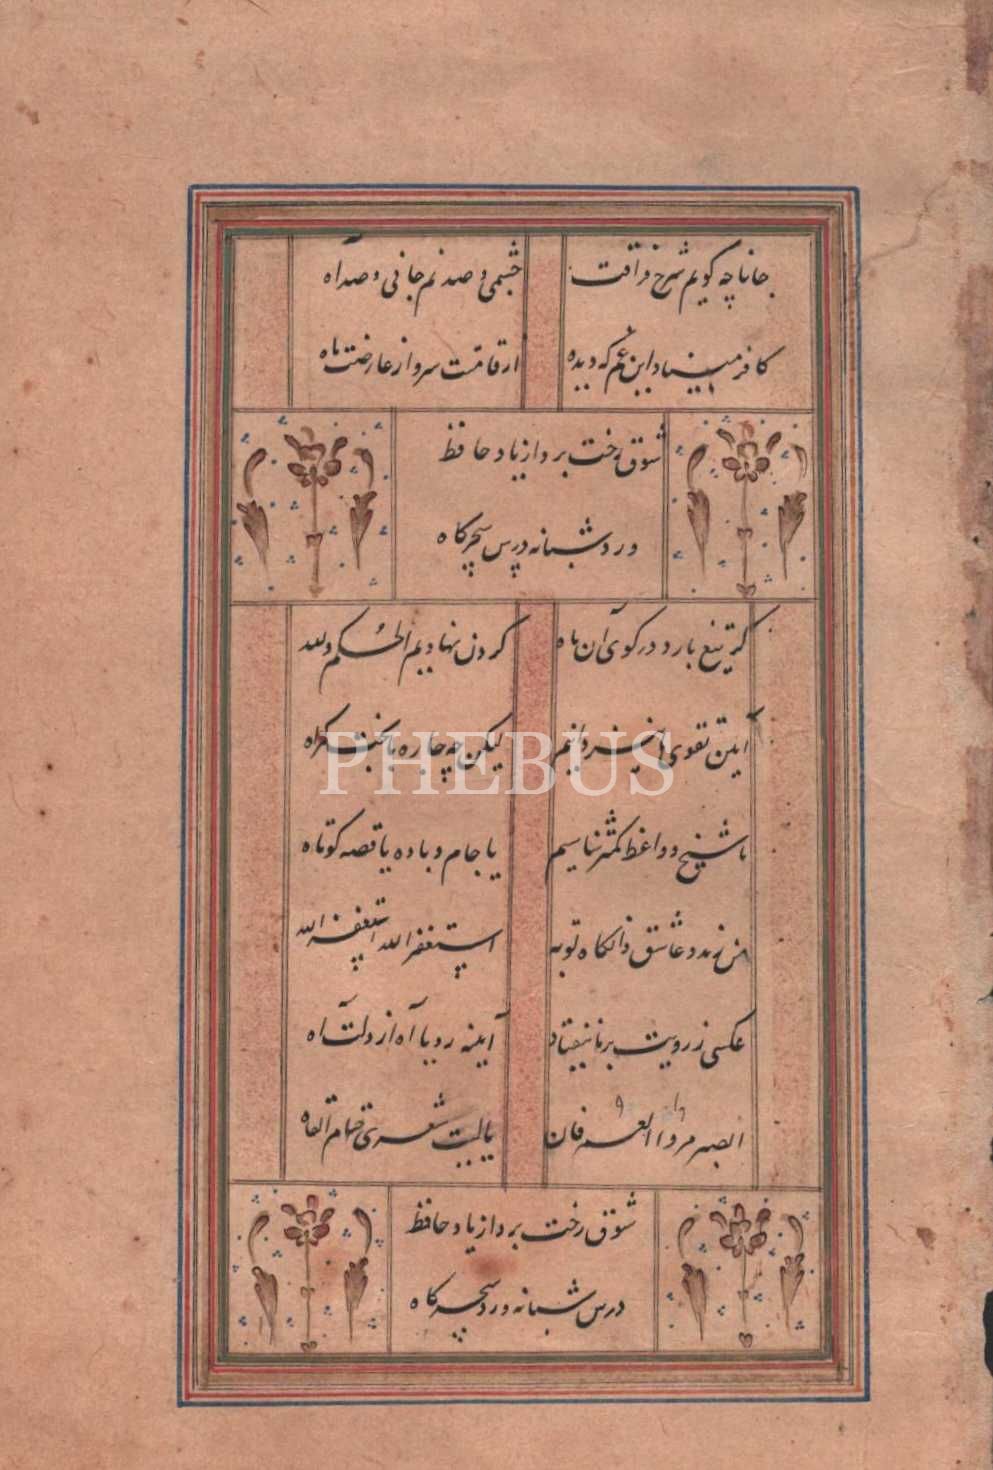 جانا چه گویم شرح فراقت چشمی و صد نم جانی و صد آه
کافر مبیناد این غم که دیده از قامتت سرو از عارضت ماه
شوق رخت برد از یاد حافظ
ورد شبانه درس سحرگاه
گر تیغ بارد در کوی آن ماه گردن نهادیم الحکم لله
آیین تقوی ما نیز دانیم لیکن چه چاره با بخت گمراه
ما شیخ و واعظ کمتر شناسیم یا جام و باده یا قصه کوتاه
من رند و عاشق وانگاه توبه استغفر الله استغفر الله
عکسی ز رویت بر ما نیفتاد آیینه رویا آه از دلت آه
الصبر مر و العمر فان یا لیت شعری حتام القاه
شوق رخت برد از یاد حافظ
درس شبانه ورد سحرگاه
PHEBUS